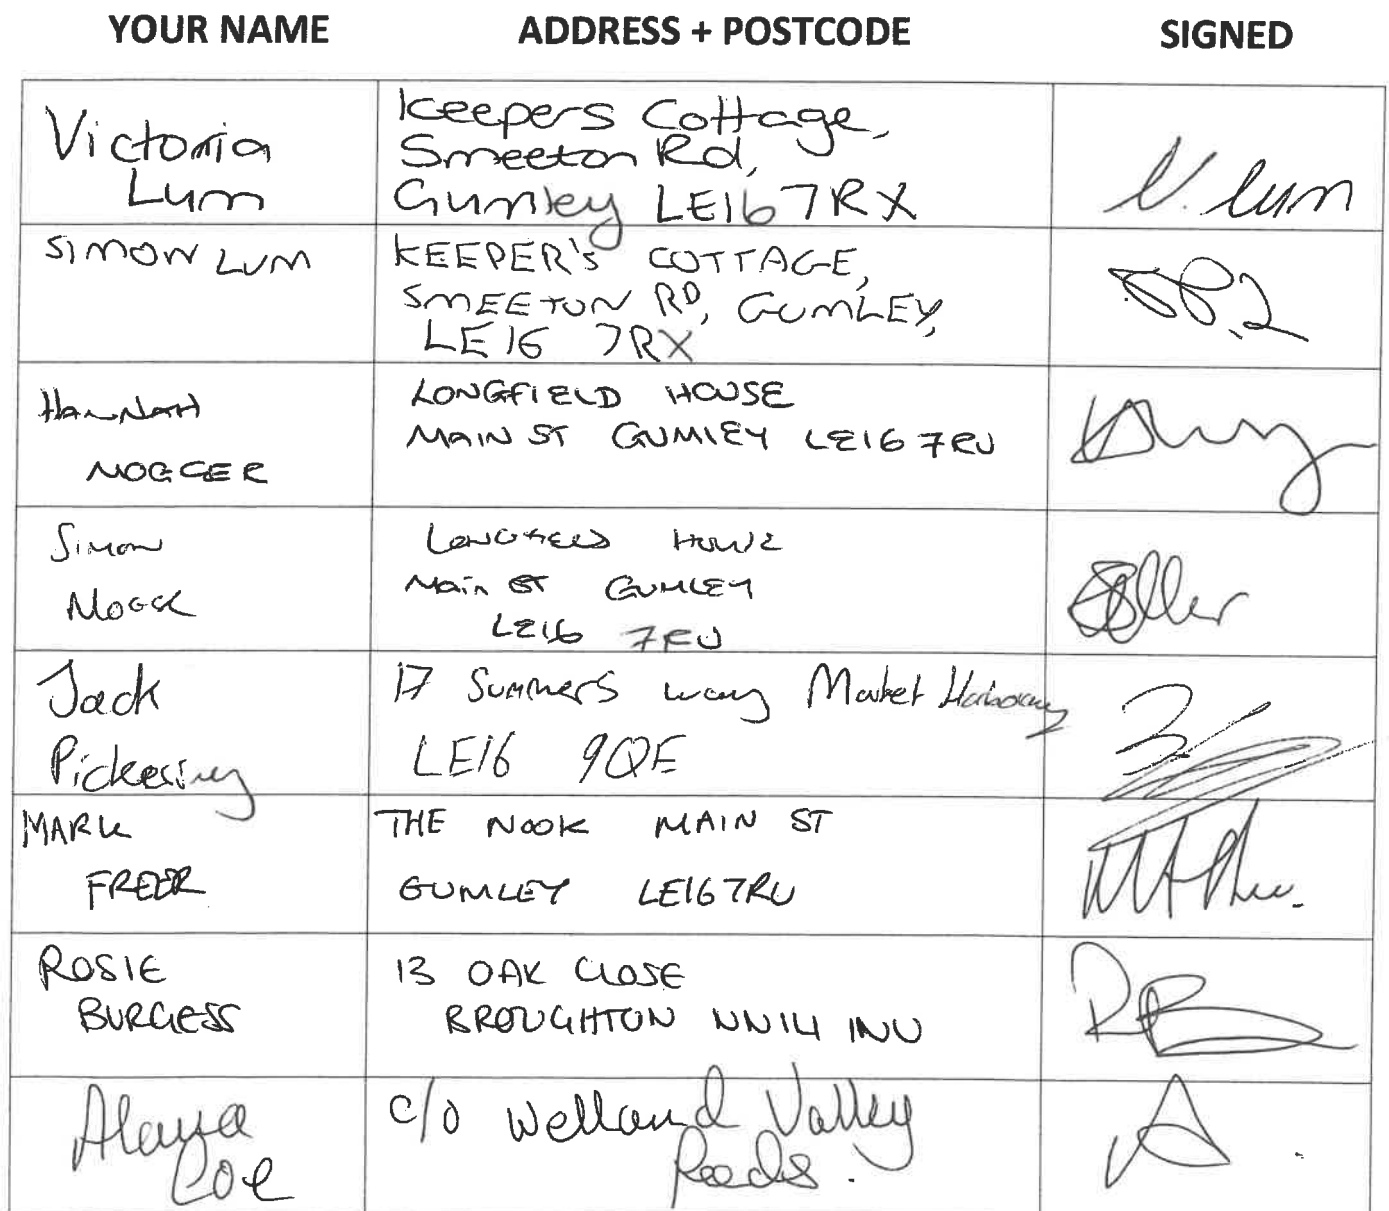 YOUR NAME ADDRESS + POSTCODE SIGNED
Victoria
Lum
Keepers Cottage,
Smeeton Rd,
Gumley LE16 7RX
V. Lum
SIMON LUM
KEEPER'S COTTAGE,
SMEETON RD, GUMLEY,
LE16 7RX
HANNAH
NOGGER
LONGFIELD HOUSE
MAIN ST GUMLEY LE16 7RU
Simon
LONGFIELD HOUSE
Main ST GUMLEY
LE16 7RU
Jack
Pickering
17 Summers way Market Harborough
LE16 9QE
MARK
FREER
THE NOOK MAIN ST
GUMLEY LE16 7RU
ROSIE
BURGESS
13 OAK CLOSE
BROUGHTON NN14 1NU
RB
Alana
Coe
c/o Welland Valley